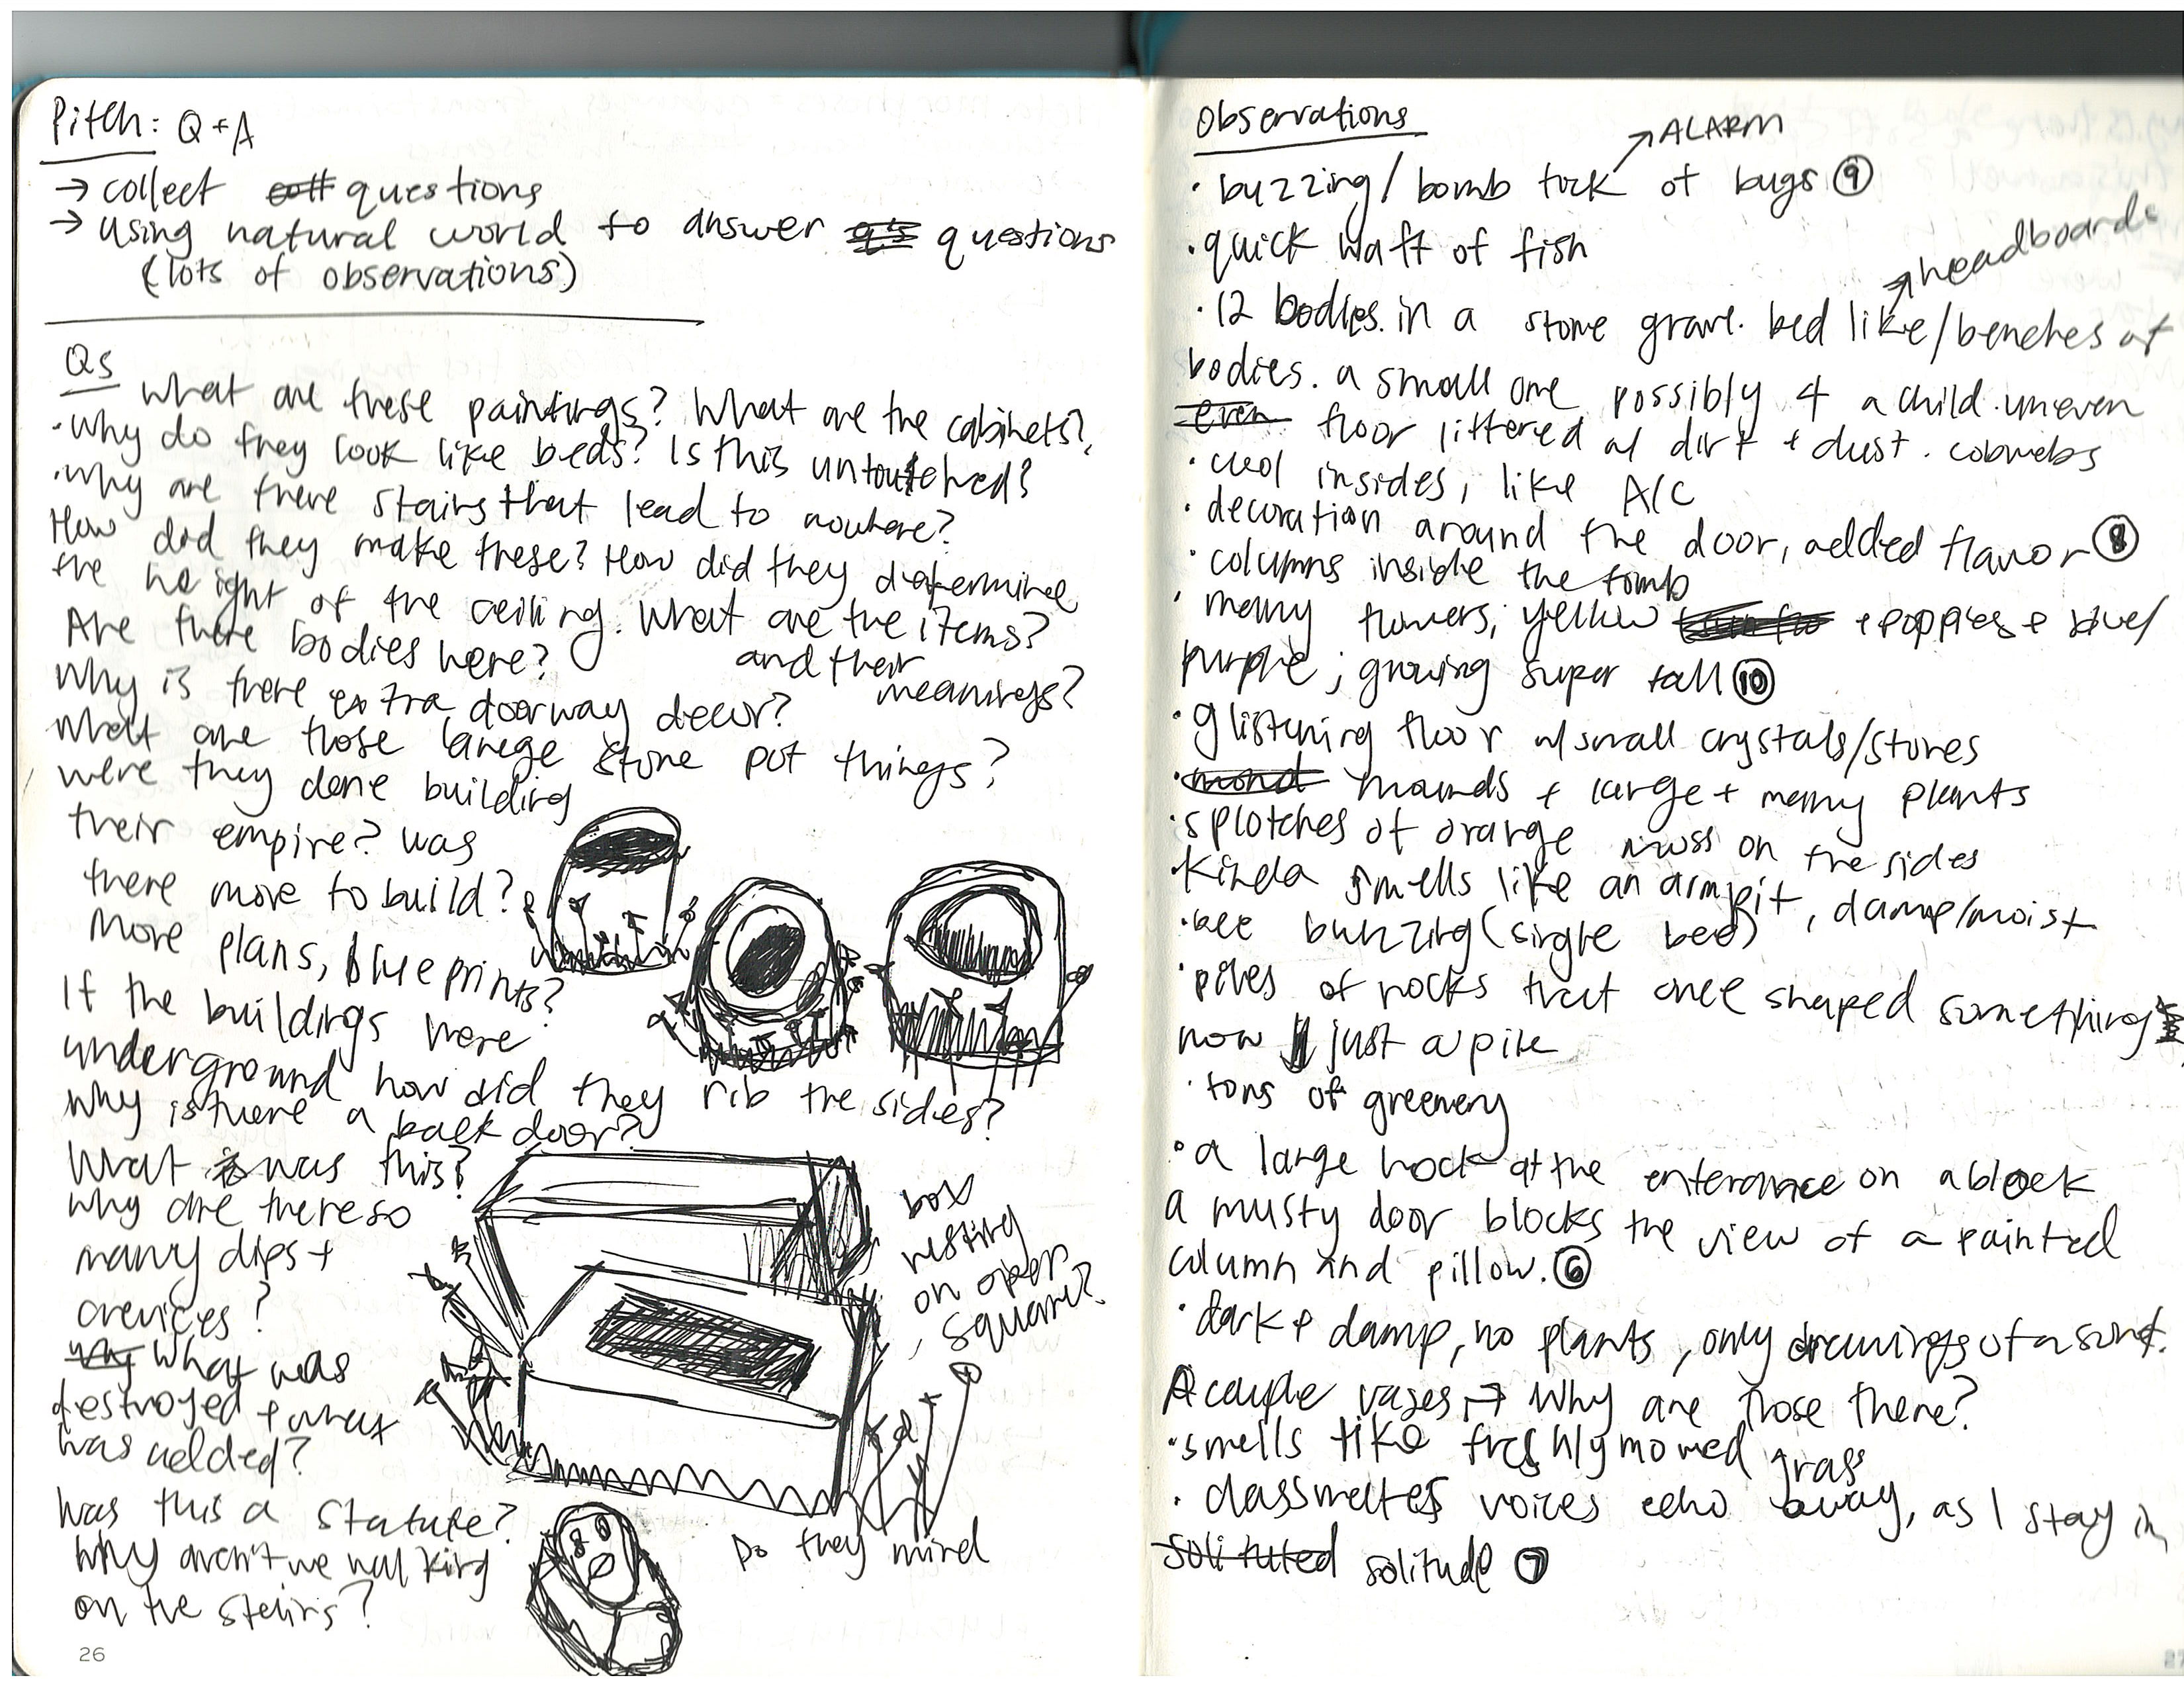 Pitch: Q + A
→ collect questions
→ using natural world to answer questions
(lots of observations)
Qs
What are these paintings? What are the cabinets?
·Why do they look like beds? Is this untouched?
·Why are there stairs that lead to nowhere?
How did they make these? How did they determine
the height of the ceiling. What are the items?
and their meanings?
Are there bodies here?
Why is there extra doorway decor?
What are those large stone pot things?
were they done building
their empire? was
there more to build?
More plans, blueprints?
If the buildings were
underground how did they rib the sides?
Why is there a back door?
What was this?
Why are there so
many dips +
crevices?
What was
destroyed + what
was added?
Was this a statute?
Why aren't we walking
on the stairs?
box
resting
on open
square?
Do they mind
26
Observations
· buzzing/bomb tick of bugs ⑨
→ ALARM
· quick waft of fish
· 12 bodies. in a stone grave. bed like/benches of
→ headboards
bodies. a small one possibly 4 a child. uneven
floor littered w/ dirt + dust. cobwebs
· cool insides, like A/C
· decoration around the door, added flavor ⑧
· columns inside the tomb
· many flowers, yellow + poppies + blue/
purple; growing super tall ⑩
· glistening floor w/small crystals/stones
· mounds + large + many plants
· splotches of orange moss on the sides
· kinda smells like an armpit, damp/moist
· bee buzzing (single bee)
· piles of rocks that once shaped something
now just a pile
· tons of greenery
· a large rock at the enterance on a block
a musty door blocks the view of a painted
column and pillow. ⑥
· dark + damp, no plants, only drawings of a
A couple vases → Why are those there?
· smells like freshly mowed grass
· classmates voices echo away, as I stay in
solitude ⑦
27